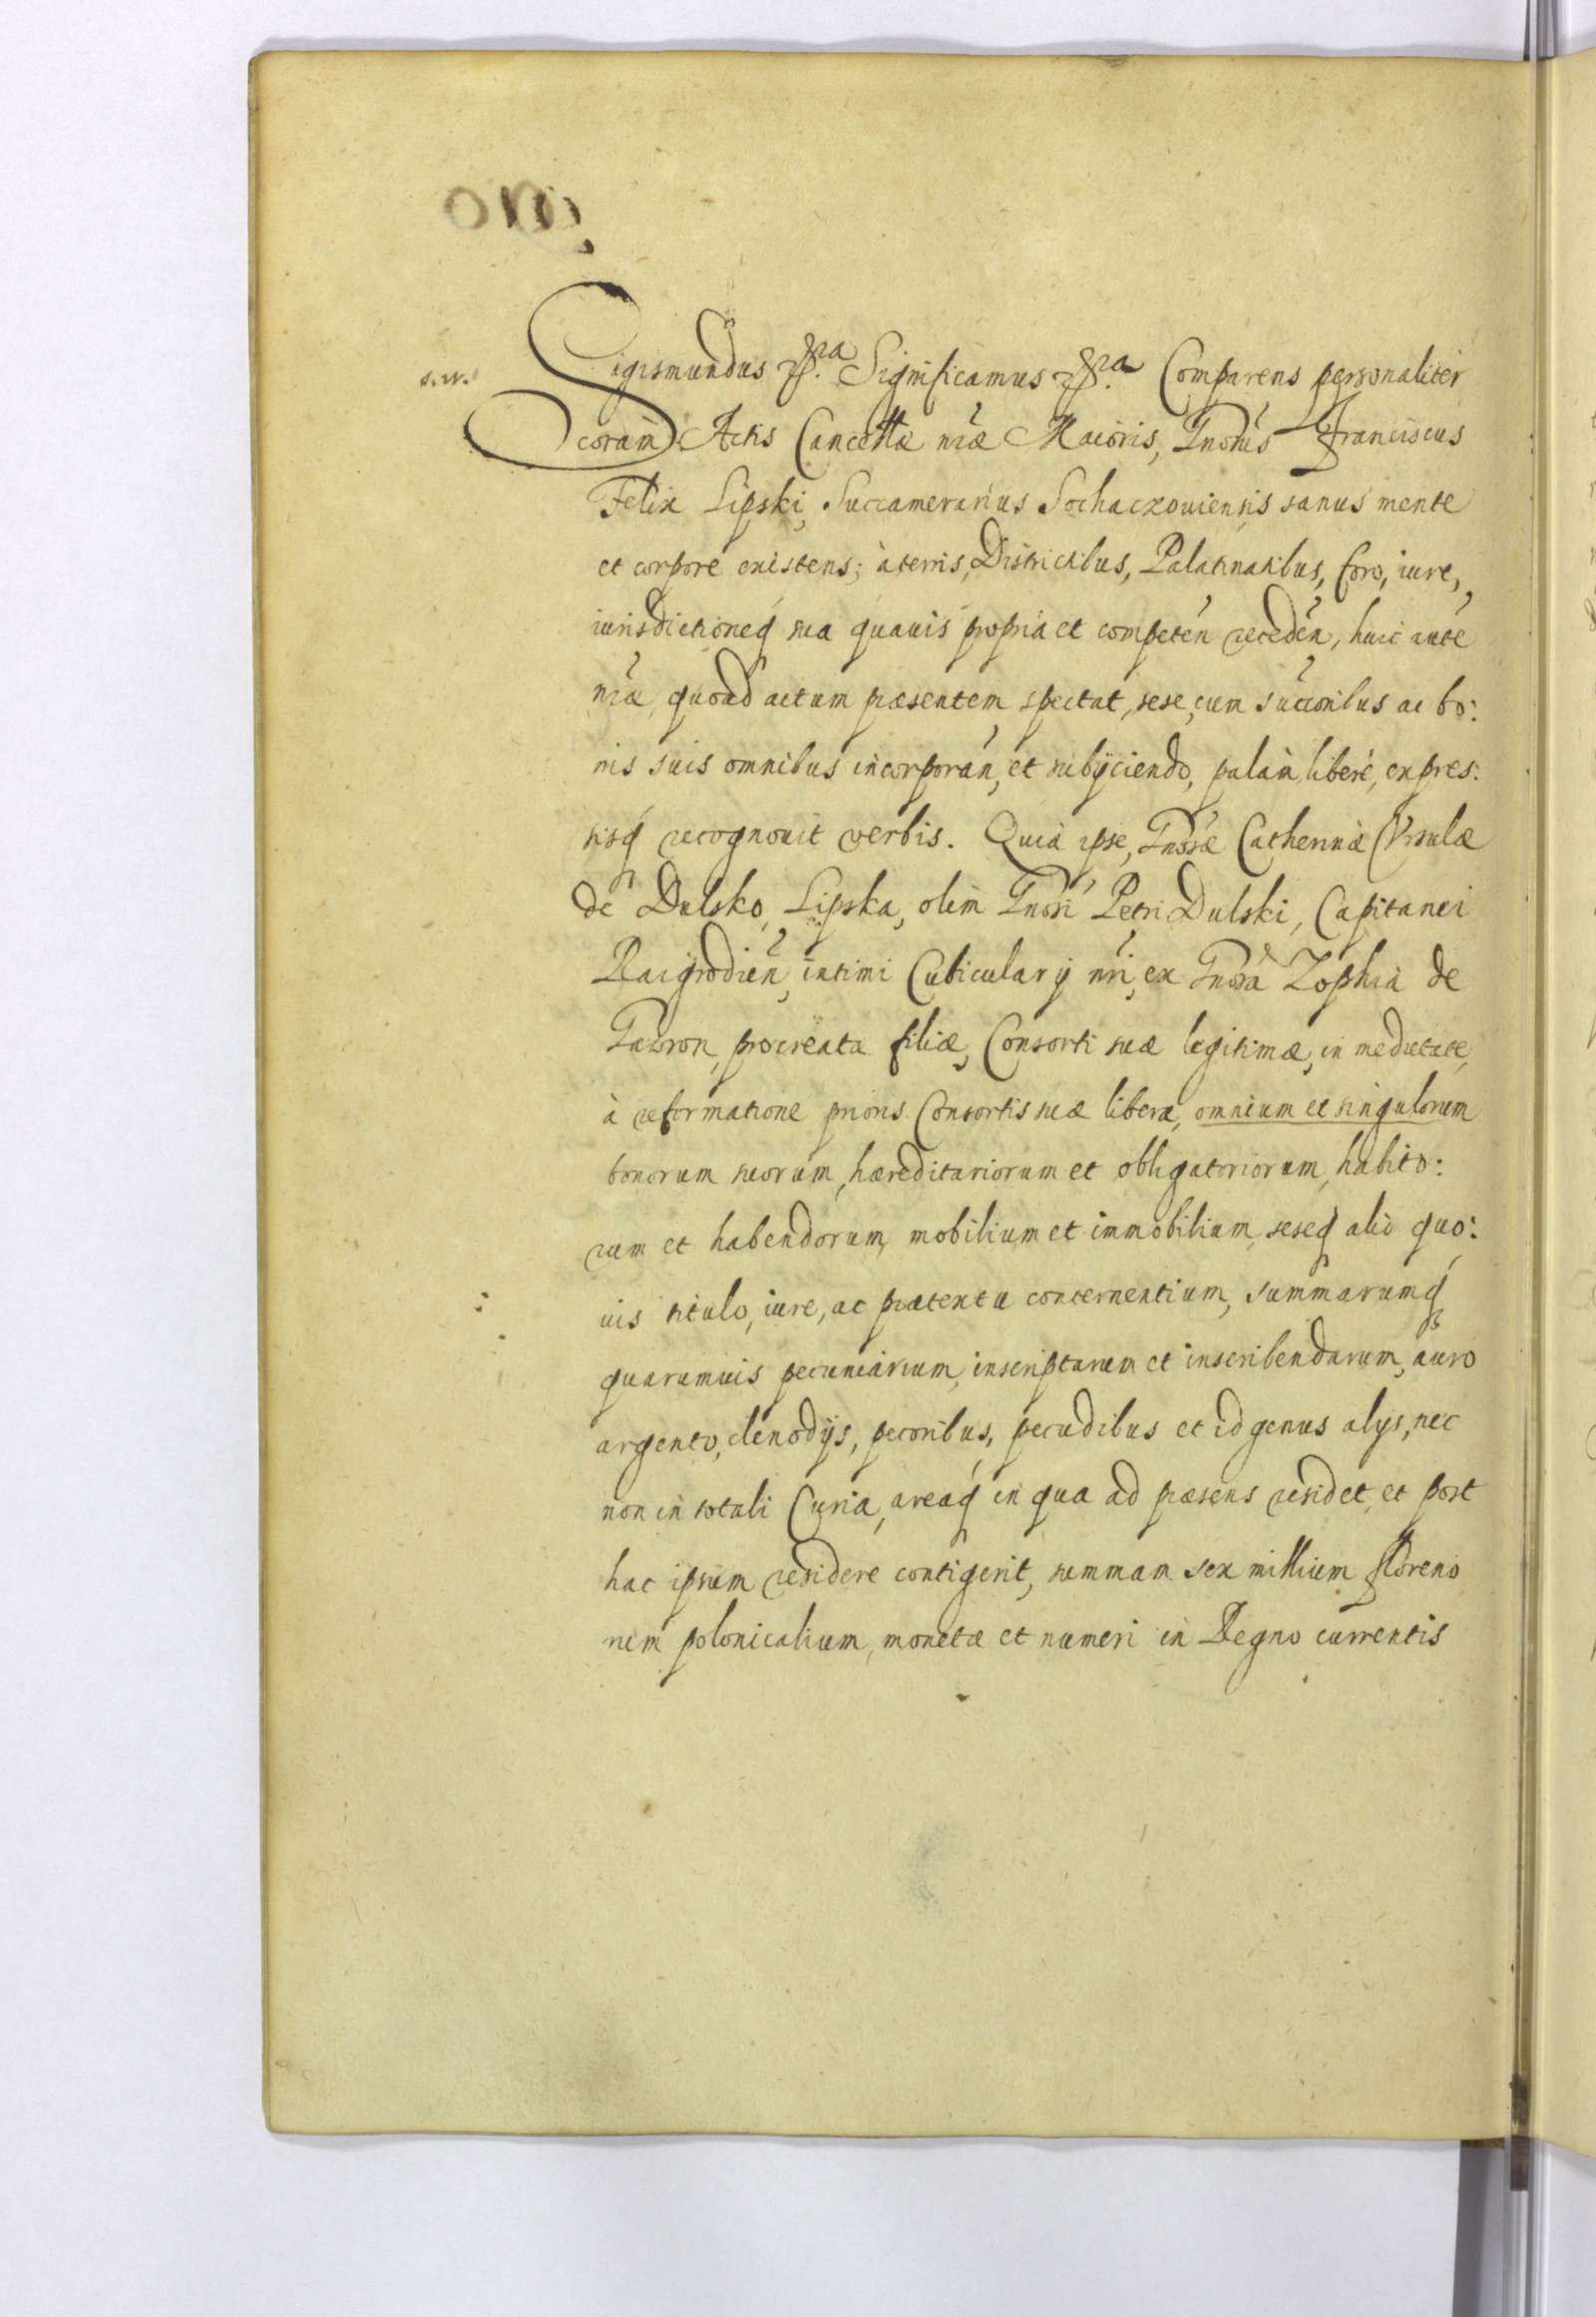 s.w.
Sigismundus etc.ra Significamus etc.ra Comparens personaliter
coram Actis Cancellæ nræ Maioris, Gnosus Franciscus
Felix Lipski, Succamerarius Sochaczouiensis sanus mente
et corpore existens; à terris, Districtibus, Palatinatibus, foro, iure,
iurisdictioneq sua quauis propria et competen receden, huic aute
nræ, quoad actum præsentem spectat, sese, cum succoribus ac bo:
nis suis omnibus incorporan, et subijciendo, palàm liberè, expres:
sisq recognouit verbis. Quià ipse, Gnosæ Catherinæ Vrsulæ
de Dulsko, Lipska, olim Gnosi Petri Dulski, Capitanei
Raigrodien, intimi Cubicularij nri, ex Gnosa Zophia de
procreata filiæ, Consorti suæ legitimæ, in medietate,
à reformatione prioris Consortis suæ libera, omnium et singulorum
bonorum suorum, hæreditariorum et obligatoriorum, habito:
rum et habendorum, mobilium et immobilium, seseq alio quo:
uis titulo, iure, ac prætextu concernentium, summarumq
quarumuis pecuniarium, inscriptarum et inscribendarum, auro
argento, clenodijs, pecoribus, pecudibus et id genus alijs, nec
non in totali Curia, areaq in qua ad præsens residet, et post
hac ipsum residere contigerit, summam sex millium floreno
rum polonicalium, monetæ et numeri in Regno currentis